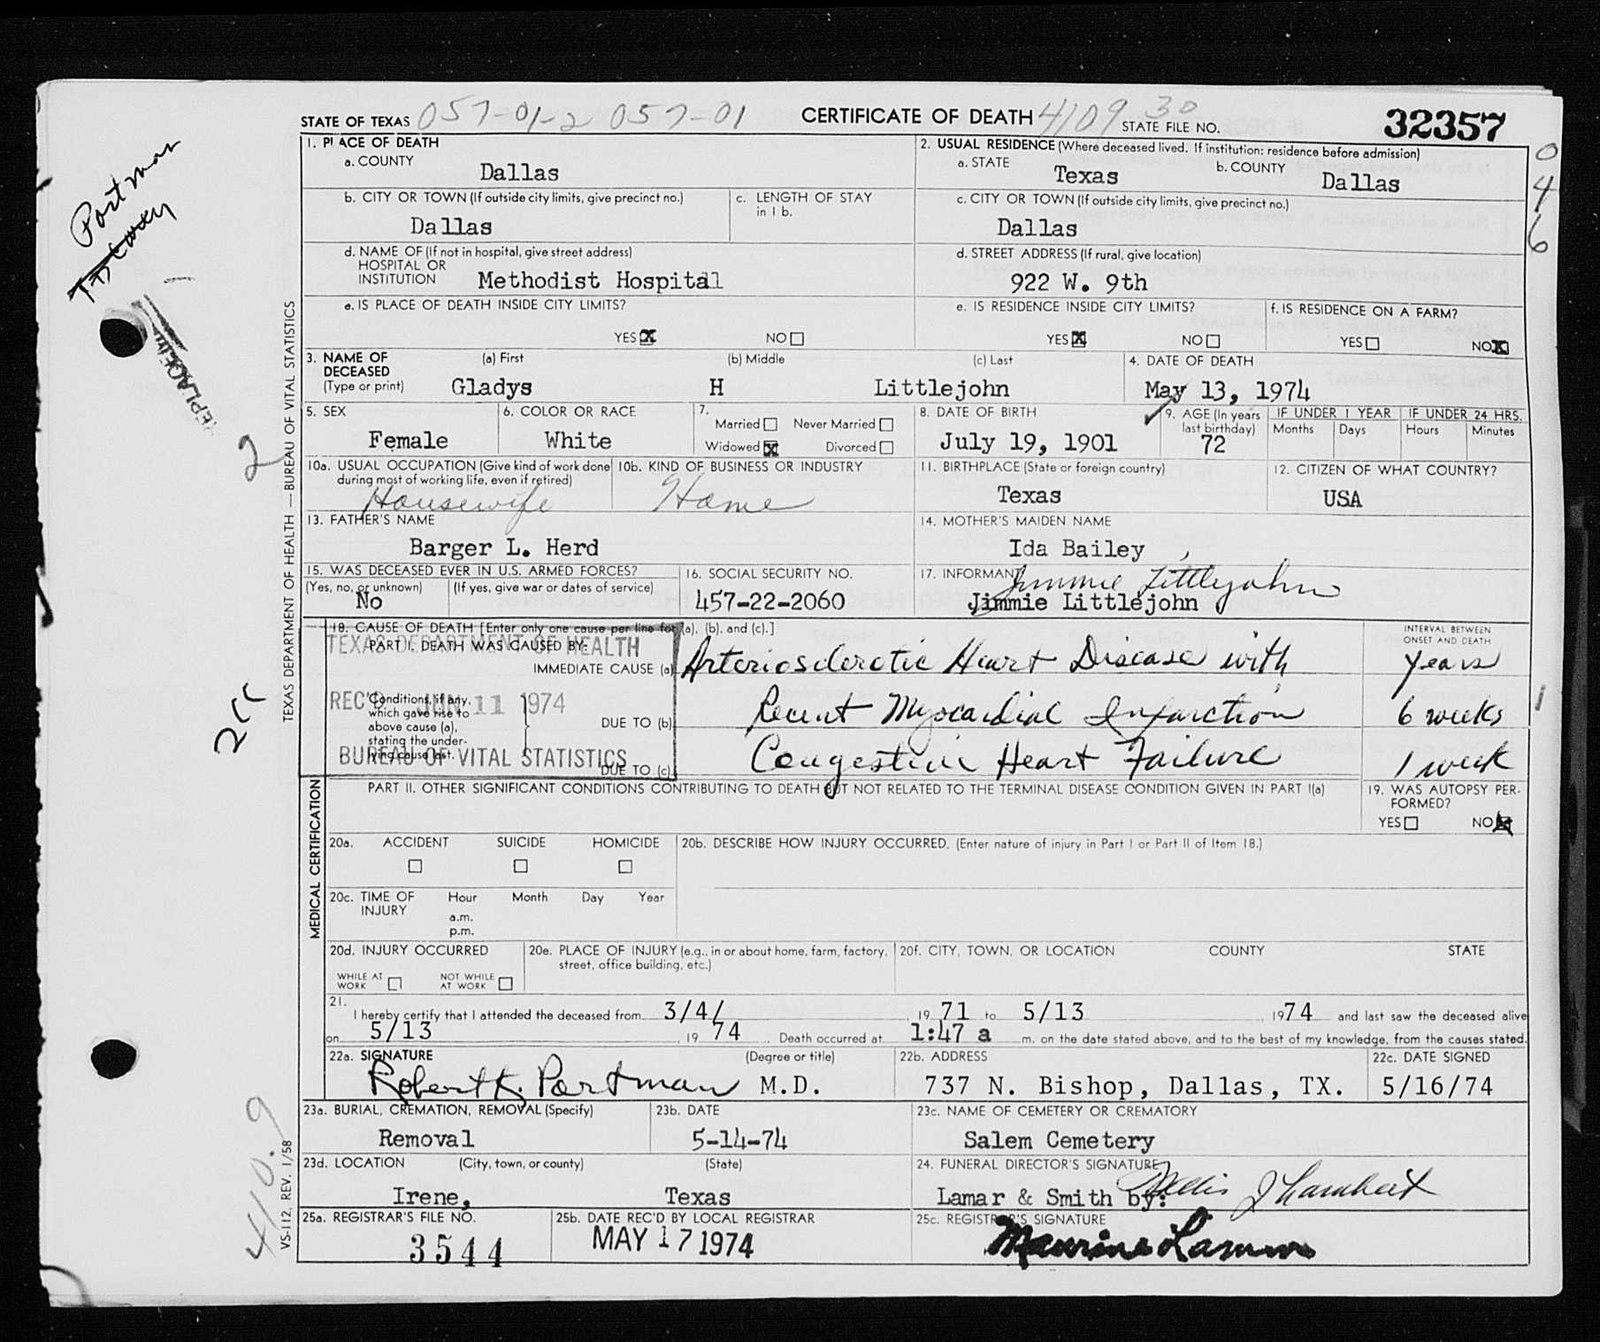 STATE OF TEXAS 057-01-2 057-01 CERTIFICATE OF DEATH 4109 30 STATE FILE NO. 32357
046
1. PLACE OF DEATH
a. COUNTY
Dallas
2. USUAL RESIDENCE (Where deceased lived. If institution: residence before admission)
a. STATE
Texas
b. COUNTY
Dallas
b. CITY OR TOWN (If outside city limits, give precinct no.)
Dallas
c. LENGTH OF STAY
in 1 b.
c. CITY OR TOWN (If outside city limits, give precinct no.)
Dallas
d. NAME OF (If not in hospital, give street address)
HOSPITAL OR
INSTITUTION Methodist Hospital
d. STREET ADDRESS (If rural, give location)
922 W. 9th
e. IS PLACE OF DEATH INSIDE CITY LIMITS?
YES X NO
e. IS RESIDENCE INSIDE CITY LIMITS?
YES X NO
f. IS RESIDENCE ON A FARM?
YES NO X
3. NAME OF
DECEASED
(Type or print)
(a) First
Gladys
(b) Middle
H
(c) Last
Littlejohn
4. DATE OF DEATH
May 13, 1974
5. SEX
Female
6. COLOR OR RACE
White
7.
Married Never Married
Widowed X Divorced
8. DATE OF BIRTH
July 19, 1901
9. AGE (In years
last birthday)
72
IF UNDER 1 YEAR
Months Days
IF UNDER 24 HRS.
Hours Minutes
10a. USUAL OCCUPATION (Give kind of work done
during most of working life, even if retired)
Housewife
10b. KIND OF BUSINESS OR INDUSTRY
Home
11. BIRTHPLACE (State or foreign country)
Texas
12. CITIZEN OF WHAT COUNTRY?
USA
13. FATHER'S NAME
Barger L. Herd
14. MOTHER'S MAIDEN NAME
Ida Bailey
15. WAS DECEASED EVER IN U.S. ARMED FORCES?
(Yes, no, or unknown) (If yes, give war or dates of service)
No
16. SOCIAL SECURITY NO.
457-22-2060
17. INFORMANT
Jimmie Littlejohn
Jimmie Littlejohn
18. CAUSE OF DEATH [Enter only one cause per line for (a), (b), and (c).]
PART I. DEATH WAS CAUSED BY:
IMMEDIATE CAUSE (a) Arteriosclerotic Heart Disease with
INTERVAL BETWEEN
ONSET AND DEATH
years
Conditions, if any,
which gave rise to
above cause (a),
stating the under-
lying cause last.
DUE TO (b) Recent Myocardial Infarction 6 weeks
DUE TO (c) Congestive Heart Failure 1 week
TEXAS DEPARTMENT OF HEALTH
REC'D JUN 11 1974
BUREAU OF VITAL STATISTICS
PART II. OTHER SIGNIFICANT CONDITIONS CONTRIBUTING TO DEATH BUT NOT RELATED TO THE TERMINAL DISEASE CONDITION GIVEN IN PART I(a)
19. WAS AUTOPSY PER-
FORMED?
YES NO X
20a. ACCIDENT SUICIDE HOMICIDE
20b. DESCRIBE HOW INJURY OCCURRED. (Enter nature of injury in Part I or Part II of Item 18.)
20c. TIME OF
INJURY
Hour Month Day Year
a.m.
p.m.
20d. INJURY OCCURRED
WHILE AT
WORK
NOT WHILE
AT WORK
20e. PLACE OF INJURY (e.g., in or about home, farm, factory,
street, office building, etc.)
20f. CITY, TOWN, OR LOCATION COUNTY STATE
21.
I hereby certify that I attended the deceased from 3/4/ 1971 to 5/13 1974 and last saw the deceased alive
on 5/13 1974. Death occurred at 1:47 a m. on the date stated above, and to the best of my knowledge, from the causes stated.
22a. SIGNATURE (Degree or title)
Robert K. Portman M.D.
22b. ADDRESS
737 N. Bishop, Dallas, TX.
22c. DATE SIGNED
5/16/74
23a. BURIAL, CREMATION, REMOVAL (Specify)
Removal
23b. DATE
5-14-74
23c. NAME OF CEMETERY OR CREMATORY
Salem Cemetery
23d. LOCATION (City, town, or county) (State)
Irene, Texas
24. FUNERAL DIRECTOR'S SIGNATURE
Lamar & Smith by: J Lambert
25a. REGISTRAR'S FILE NO.
3544
25b. DATE REC'D BY LOCAL REGISTRAR
MAY 17 1974
25c. REGISTRAR'S SIGNATURE
Maurine
TEXAS DEPARTMENT OF HEALTH — BUREAU OF VITAL STATISTICS
MEDICAL CERTIFICATION
VS-112, REV. 1/58
Portman
2
410.9
1